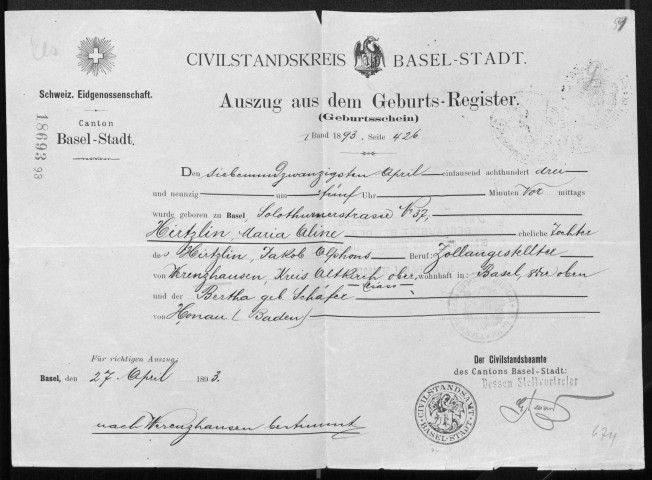 Els
91
CIVILSTANDSKREIS BASEL-STADT.
Schweiz. Eidgenossenschaft.
Canton
Basel-Stadt.
18693 93
Auszug aus dem Geburts-Register.
(Geburtsschein)
Band 1893. Seite 426
Den siebenundzwanzigsten April eintausend achthundert drei
und neunzig um fünf Uhr Minuten Vor mittags
wurde geboren zu Basel, Solothurnerstrasse No 37,
Hirtzlin, Maria Aline eheliche Tochter
des Hirtzlin, Jakob Alphons Beruf: Zollangestellter
von Werenzhausen, Kreis Altkirch ober, wohnhaft in: Basel, oben
Elsass
und der Bertha geb Schäfer
von Honau (Baden)
Für richtigen Auszug:
Basel, den 27 April 1893.
Der Civilstandsbeamte
des Cantons Basel-Stadt:
Dessen Stellvertreter
CIVILSTANDSAMT BASEL-STADT
nach Werenzhausen bestimmt